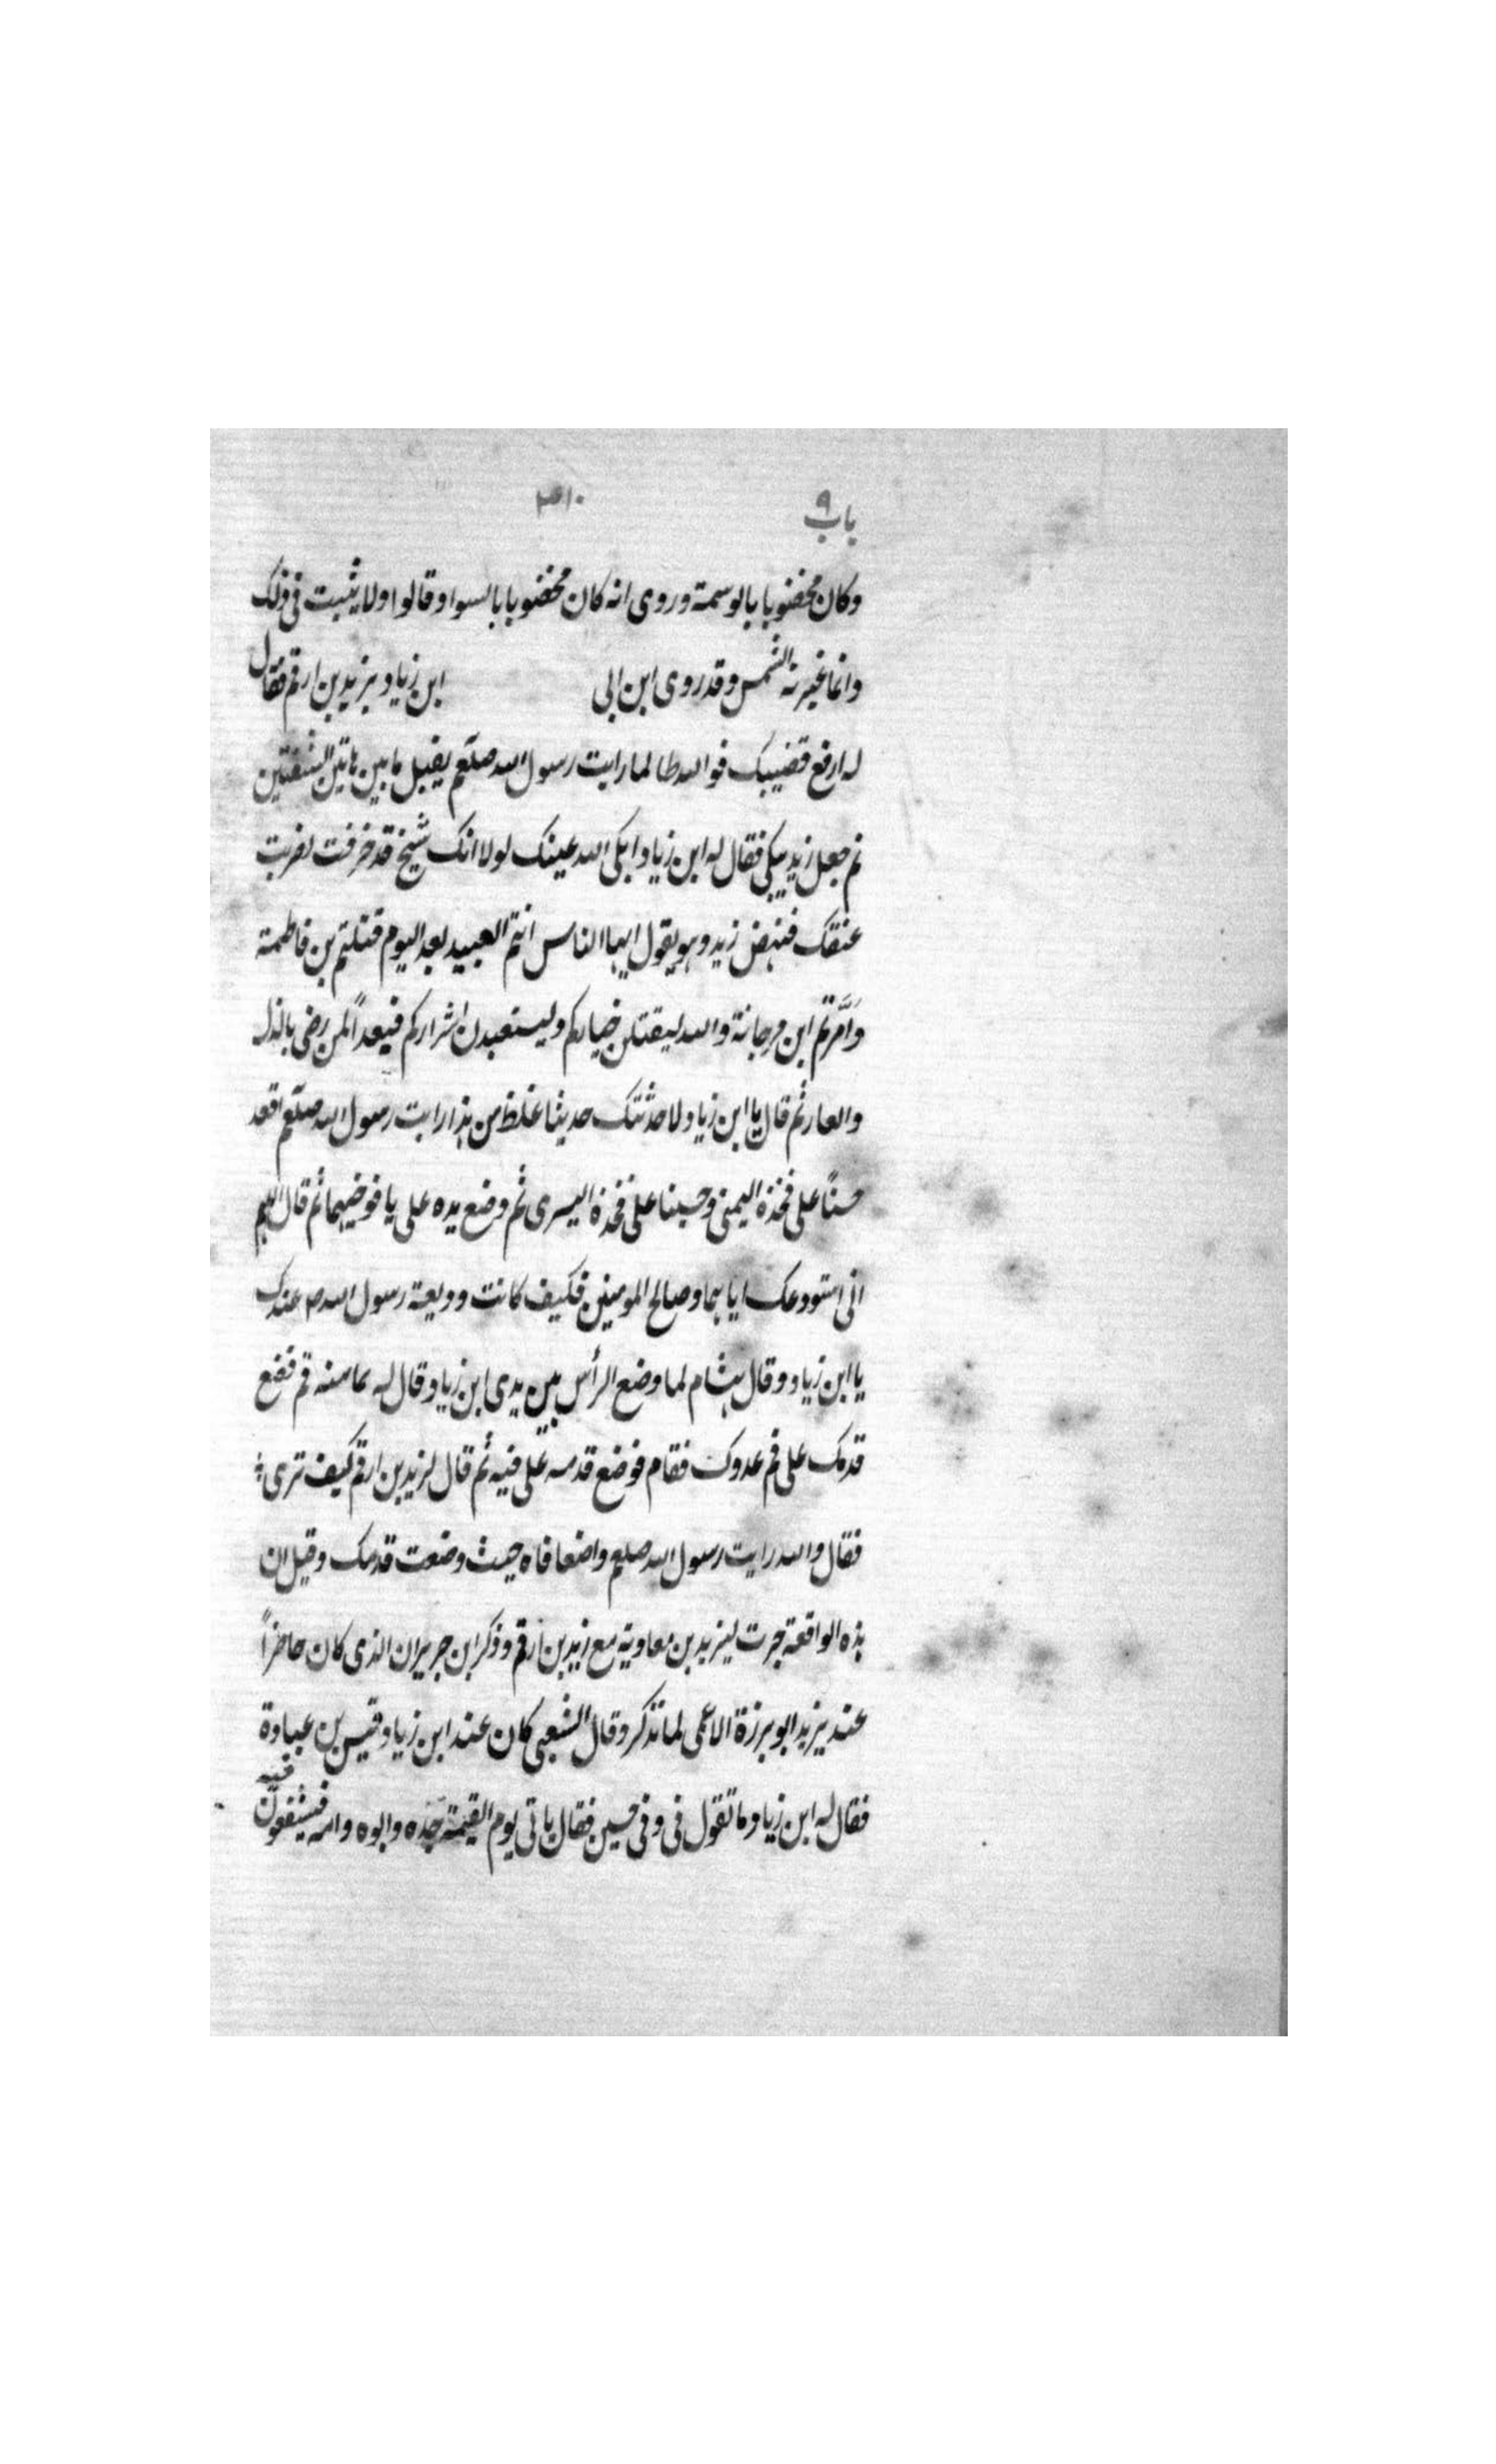 باب ٩
وكان مخضوبا بالوسمة وروى انه كان مخضوبا بالسواد وقالوا ولا يثبت فى ذلك
وانما غيرته الشمس وقد روى ابن ابى ابن زياد بزيد بن ارقم فقال
له ارفع قضيبك فوالله طالما رايت رسول الله صلعم يقبل ما بين هاتين الشفتين
ثم جعل زيد يبكى فقال له ابن زياد ابكى الله عينك لولا انك شيخ قد خرفت لضربت
عنقك فنهض زيد وهو يقول ايها الناس انتم العبيد بعد اليوم قتلتم بن فاطمة
وَاَمَّرتم ابن مرجانة والله ليقتلن خياركم وليستعبدن اشراركم فبعداً لمن رضى بالذل
والعار ثم قال يا ابن زياد لاحدثتك حديثا اغلظ من هذا رايت رسول الله صلعم اقعد
حسناً على فخذه اليمنى وحسينا على فخذه اليسرى ثم وضع يده على يافوخيهما ثم قال اللهم
انى استودعك اياهما وصالح المومنين فكيف كانت وديعة رسول الله ص عندك
يا ابن زياد وقال هشام لما وضع الرأس بين يدى ابن زياد قال له كاهنه قم فضع
قدمك على فم عدوك فقام فوضع قدمه على فيه ثم قال لزيد بن ارقم كيف ترى
فقال والله رايت رسول الله صلعم واضعا فاه حيث وضعت قدمك وقيل ان
هذه الواقعة جرت ليزيد بن معاوية مع زيد بن ارقم وذكر ابن جرير ان الذى كان حاضراً
عند يزيد ابو برزة الاعمى لما تذكر وقال الشعبى كان عند ابن زياد قيس بن عباده
فقال له ابن زياد ما تقول فى وفى حسين فقال ياتى يوم القيمة جده وابوه وامه فيشفعون فيه